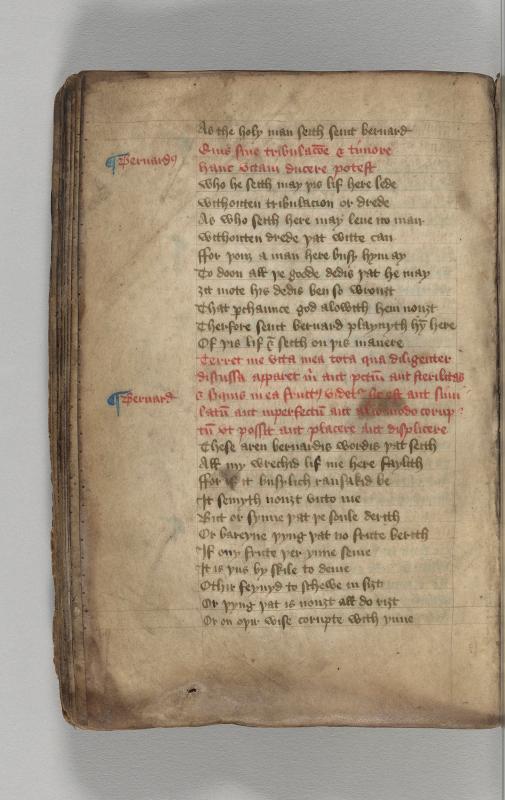 As the holy man seith seint bernard
¶ Bernardꝰ
Quis sine tribulac̄oe & timore
hanc vitam ducere potest
Who he seith may þis lif here lede
withouten tribulacion or drede
As who seith here may leue no man
withouten drede þat witte can
ffor þouȝ a man here busy hym ay
To doon all þe goode dedis þat he may
ȝit mote his dedis ben so wrouȝt
That pchaunce god alowith hem nouȝt
Therfore seint bernard playnyth hȳ here
Of þis lif & seith on þis manere
Terret me vita mea tota qua diligenter
discussa apparet m̄ aut pctm̄ aut sterilitas
¶ Bernard
& siquis in ea fructꝰ videtʳ sic est aut simu
latū aut inperfectū aut alio modo corup
tū vt possit aut placere aut displicere
These aren bernardis wordis þat seith
All my wrechid lif me here fayleth
ffor if it busylich ransakid be
It semyth nouȝt vnto me
But or synne þat þe soule derith
Or bareyne þyng þat no fruite berith
If ony fruite þer ynne seme
It is þus by skile to deme
Othir feynyd to schewe in siȝt
Or þyng þat is nouȝt all do riȝt
Or on oþir wise corupte with ynne